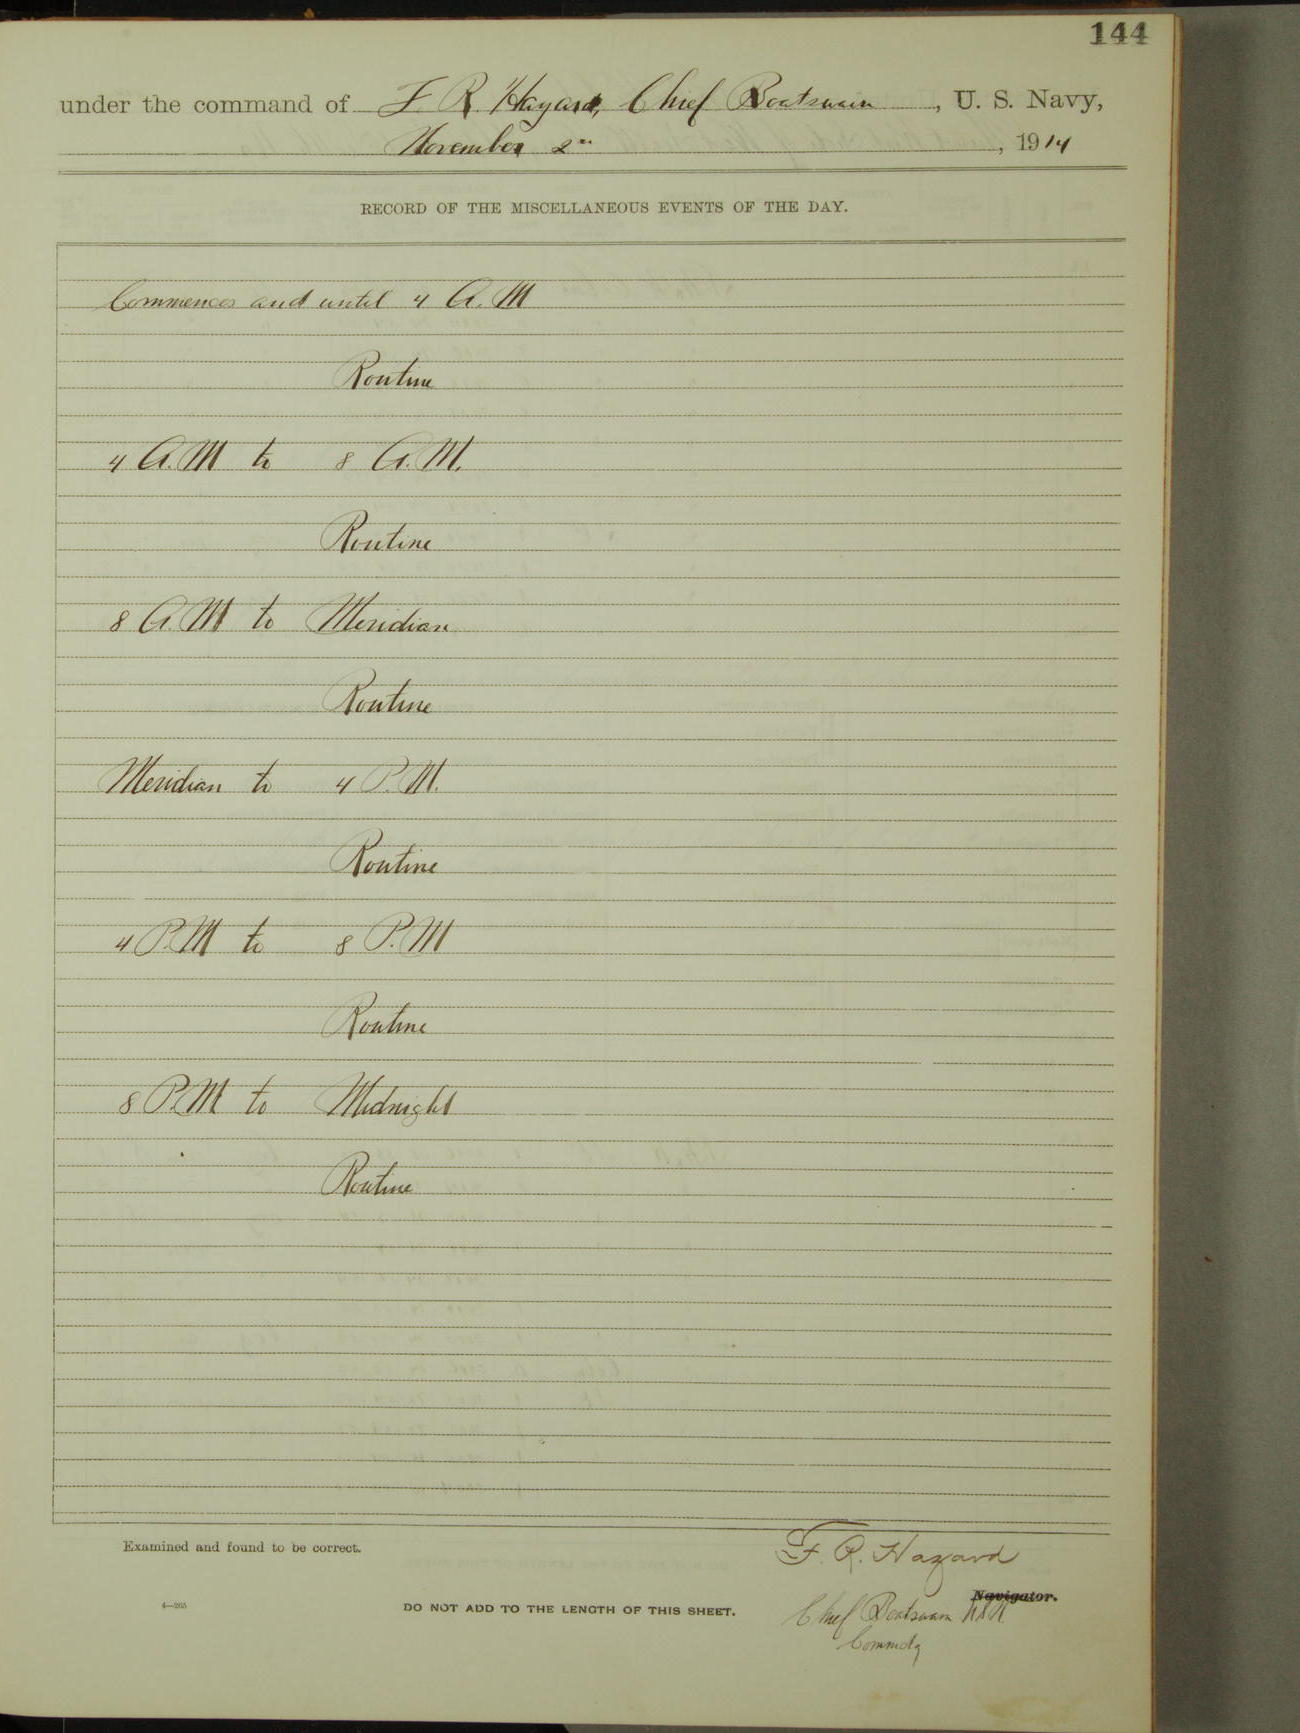 144
under the command of F. R. Hazard, Chief Boatswain, U. S. Navy,
November 2nd, 1914
RECORD OF THE MISCELLANEOUS EVENTS OF THE DAY.
Commences and until 4 A.M
Routine
4 A.M to 8 A.M.
Routine
8 A.M to Meridian
Routine
Meridian to 4 P.M.
Routine
4 P.M to 8 P.M
Routine
8 P.M to Midnight
Routine
Examined and found to be correct.
F. R. Hazard
Navigator.
4—265
DO NOT ADD TO THE LENGTH OF THIS SHEET.
Chief Boatswain USN
Commdg